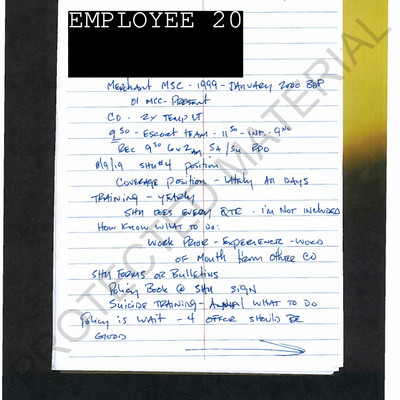 EMPLOYEE 20
MERCHANT MSC - 1999 - JANUARY 2000 BOP
01 MCC - PRESENT
CO - 2X TEMP LT
9 50 - ESCORT TEAM - 11 50 - INT -
REC 9 50 6 x 2 SA/SU RDO
8/9/19 SHU #4 POSITION
COVERAGE POSITION - LIKELY ALL DAYS
TRAINING - YEARLY
SHU DOES EVERY QTR. I'M NOT INCLUDED
HOW KNOW WHAT TO DO:
WORK PRIOR - EXPERIENCE - WORD
OF MOUTH FROM OTHER CO
SHU FORMS OR BULLETINS
POLICY BOOK @ SHU SIGN
SUICIDE TRAINING - ANNUAL WHAT TO DO
POLICY IS WAIT - 4 OFFICER SHOULD BE
GOOD
PROTECTED MATERIAL